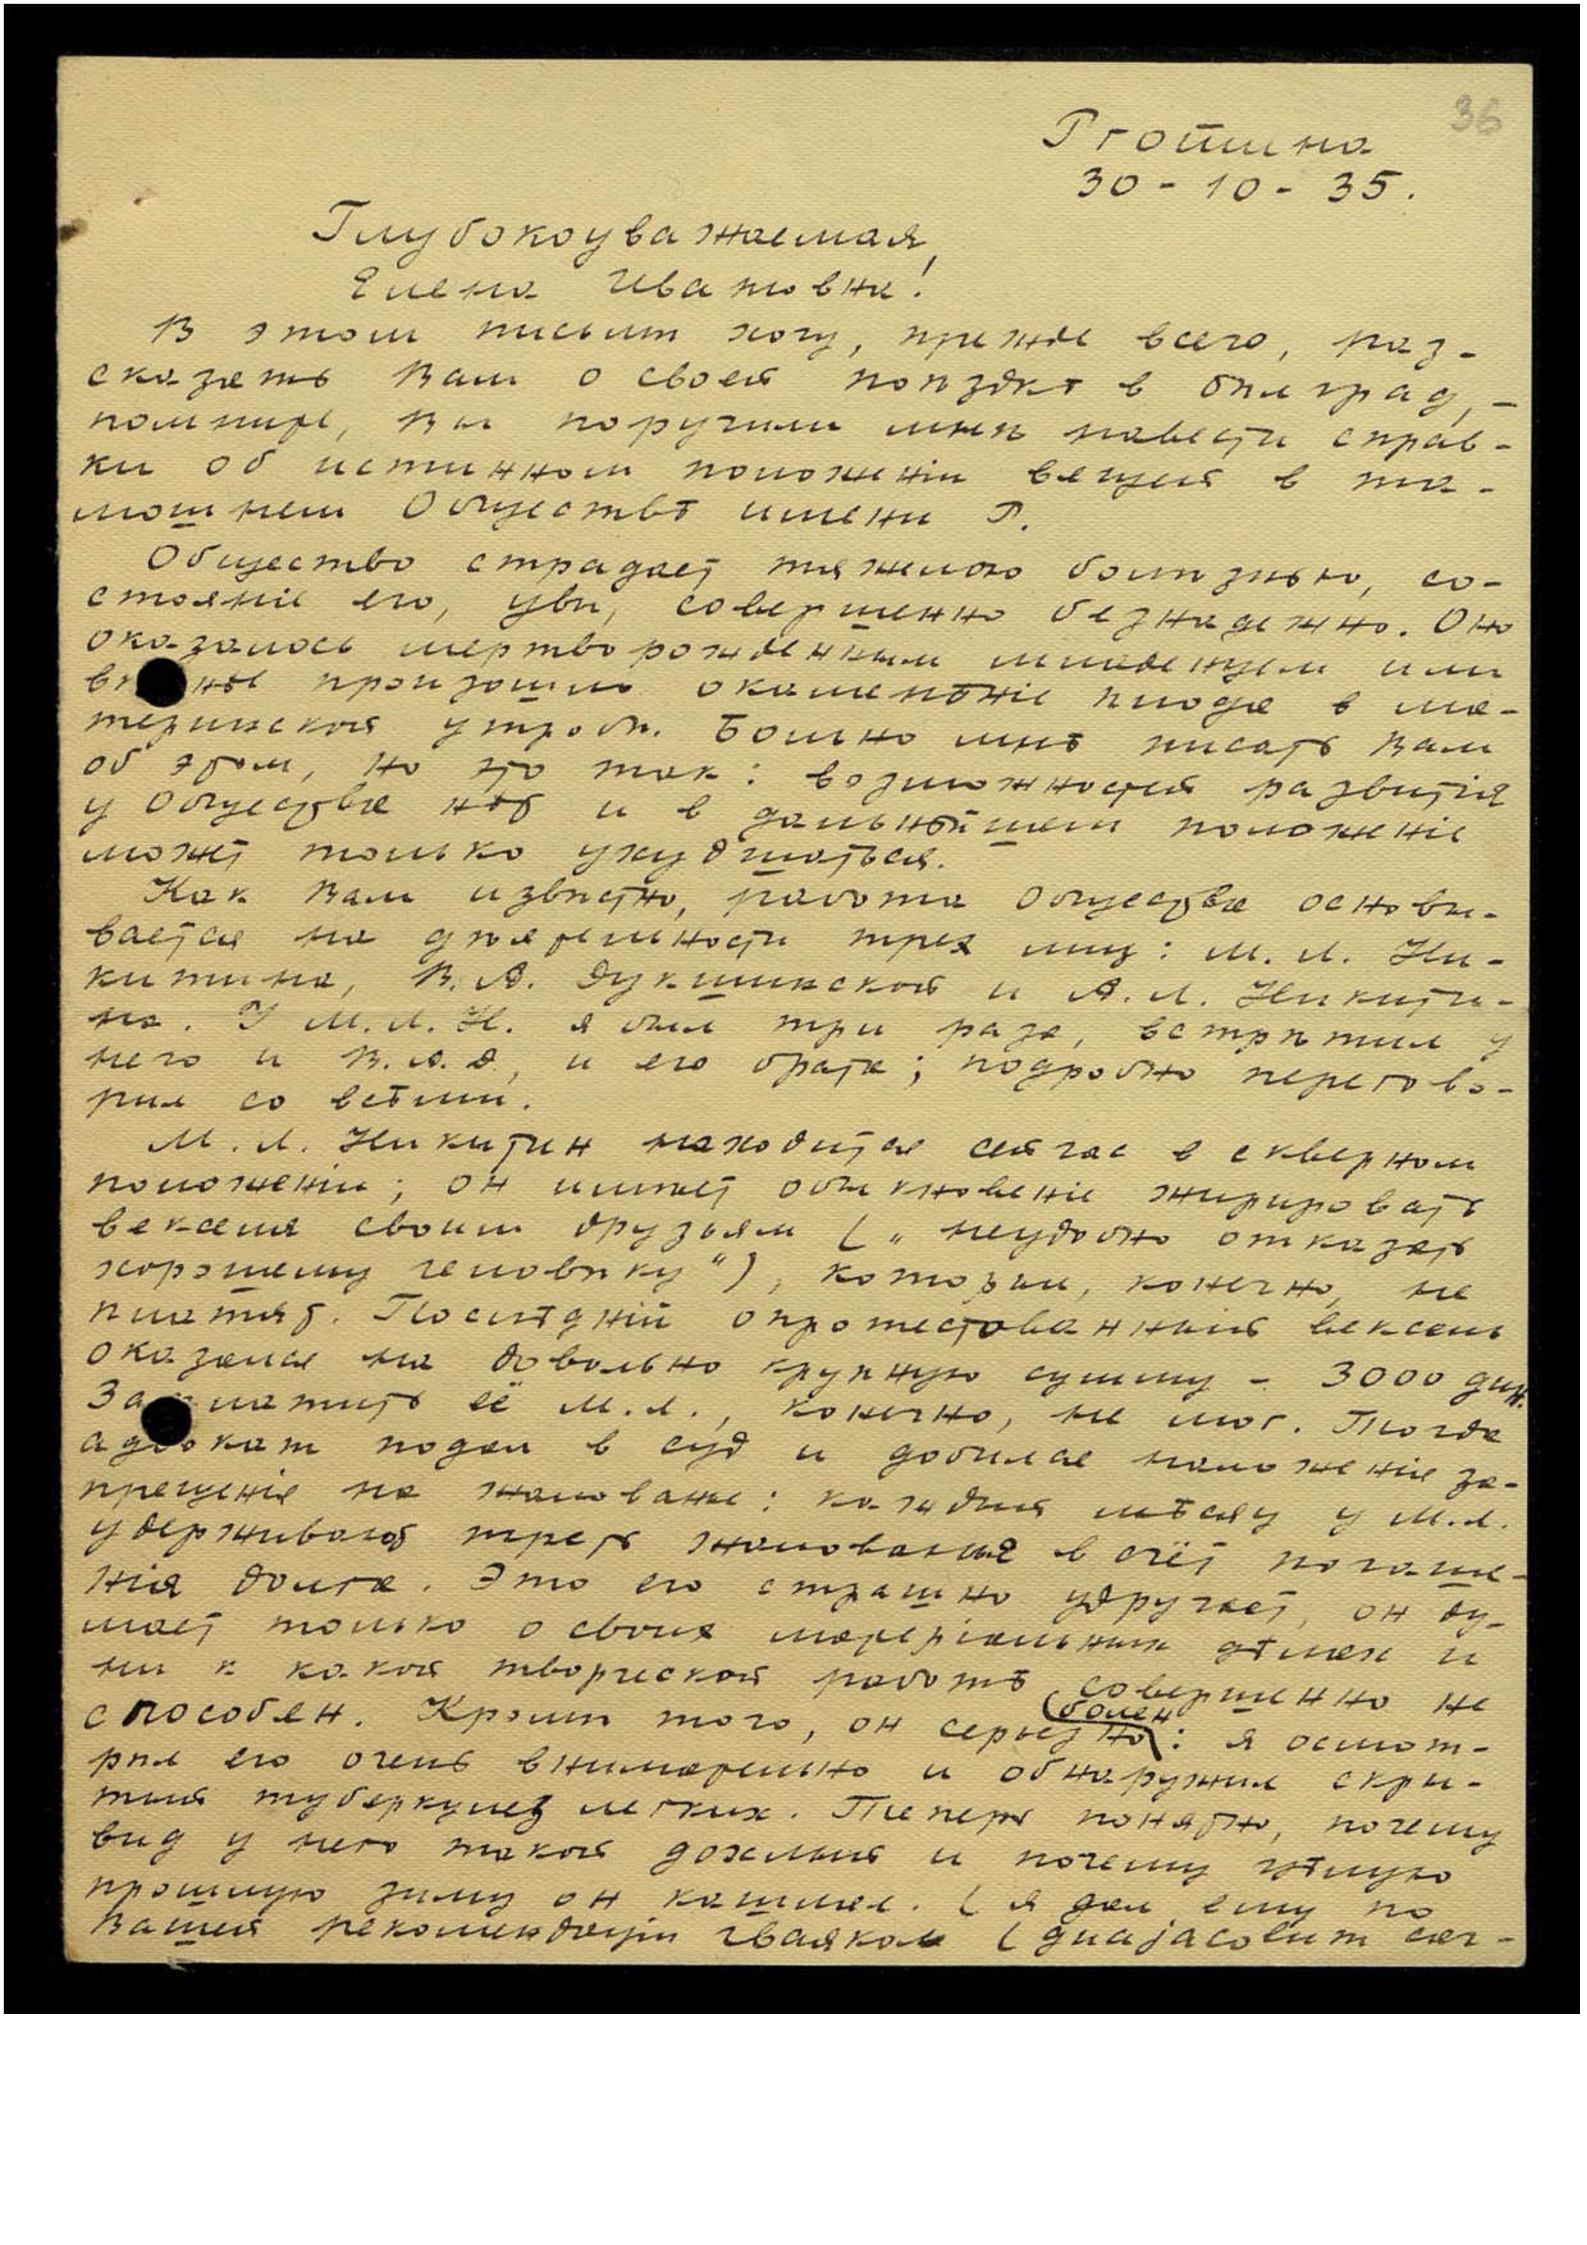 36
Рготина
30-10-35.
Глубокоуважаемая,
Елена Ивановна!
В этом письмѣ хочу, прежде всего, раз-
сказать Вам о своей поѣздкѣ в Бѣлград, –
помните, Вы поручили мнѣ навести справ-
ки об истинном положеніи вещей в та-
мошнем Обществѣ имени Р.
Общество страдает тяжелою болѣзнью, со-
стояніе его, увы, совершенно безнадежно. Оно
оказалось мертворожденным младенцем или
вѣрнѣе произошло окаменѣніе плода в ма-
теринской утробѣ. Больно мнѣ писать Вам
об этом, но это так: возможностей развитія
у Общества нѣт и в дальнѣйшем положеніе
может только ухудшаться.
Как Вам извѣстно, работа Общества основы-
вается на дѣятельности трех лиц: М. Л. Ни-
китина, В. А. Дукшинской и А. Л. Никити-
на. У М.Л.Н. я был три раза, встрѣтил у
него и В.А.Д., и его брата; подробно перегово-
рил со всѣми.
М. Л. Никитин находится сейчас в скверном
положеніи; он имѣет обыкновеніе жирировать
векселя своим друзьям („неудобно отказать
хорошему человѣку"), которые, конечно, не
платят. Послѣдній опротестованный вексель
оказался на довольно крупную сумму – 3000 дин.
Заплатить её М.Л., конечно, не мог. Тогда
адвокат подал в суд и добился наложенія за-
прещенія на жалованье: каждый мѣсяц у М.Л.
удерживают треть жалованья в счёт погаше-
нія долга. Это его страшно удручает, он ду-
мает только о своих матеріальных дѣлах и
ни к какой творческой работѣ совершенно не
способен. Кромѣ того, он серьезно болен: я осмот-
рѣл его очень внимательно и обнаружил скры-
тый туберкулез легких. Теперь понятно, почему
вид у него такой дохлый и почему цѣлую
прошлую зиму он кашлял. (Я дал ему по
Вашей рекомендаціи гваякол (guajacolum car-